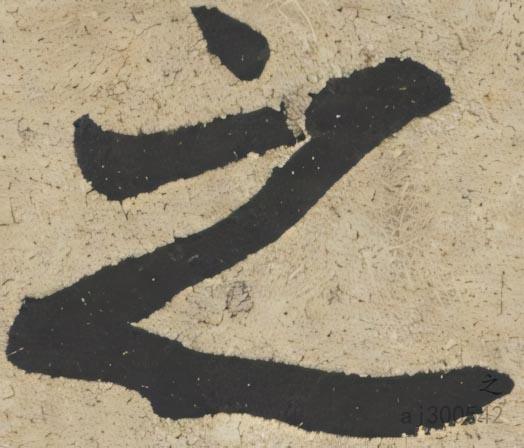 之
之
aj300542